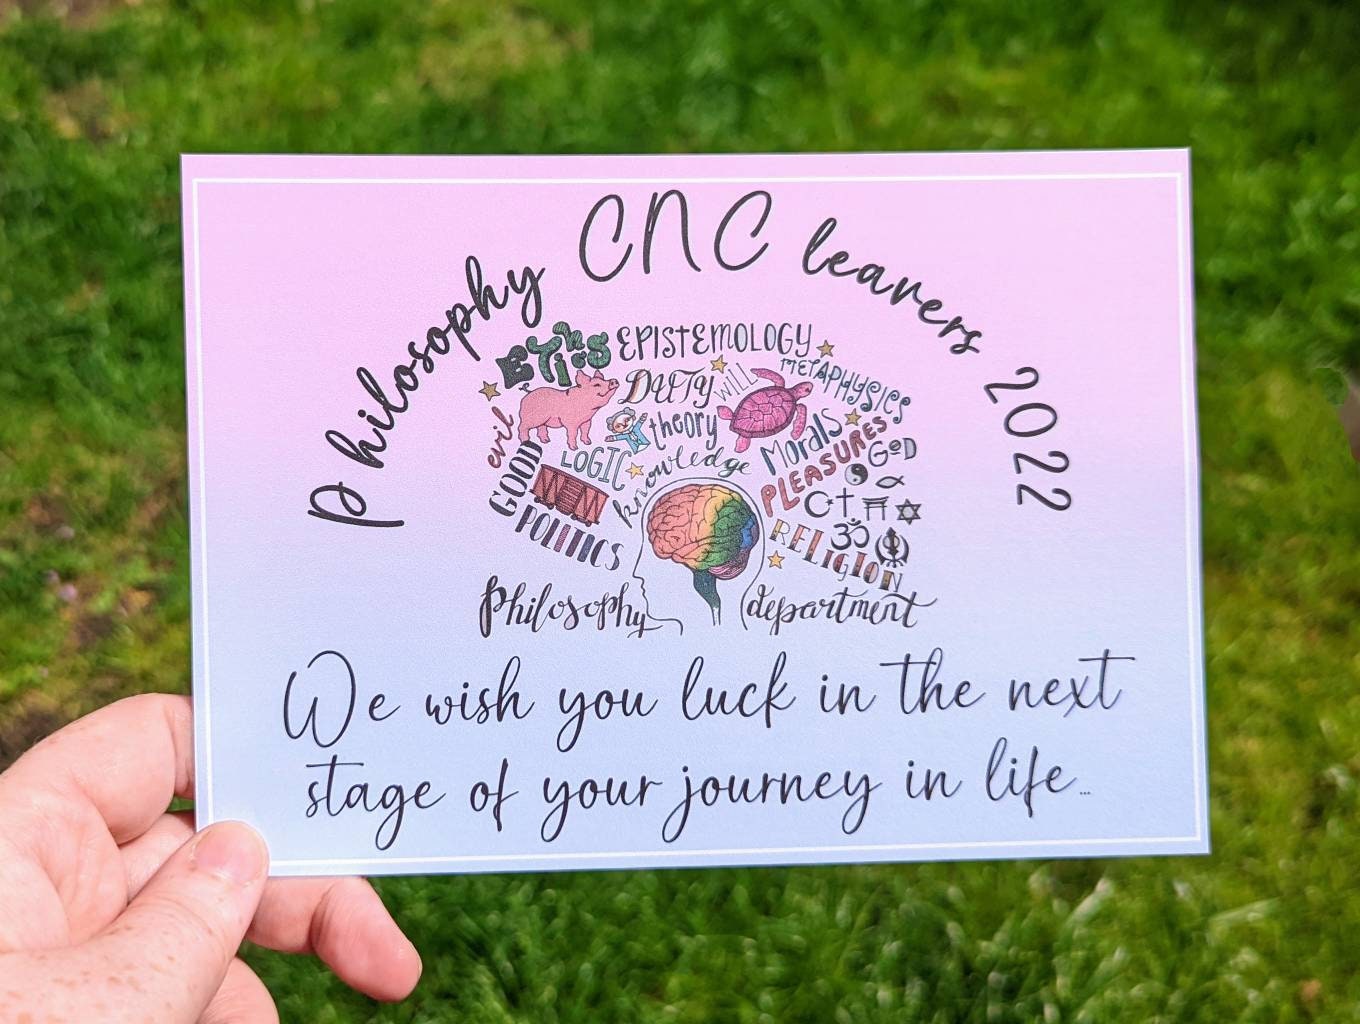 Philosophy CNC leavers 2022
EThicS EPISTEMOLOGY
DUTY WILL METAPHYSICS
evil theory Morals
GOOD LOGIC knowledge PLEASURES GOD
POLITICS RELIGION
Philosophy department
We wish you luck in the next
stage of your journey in life...